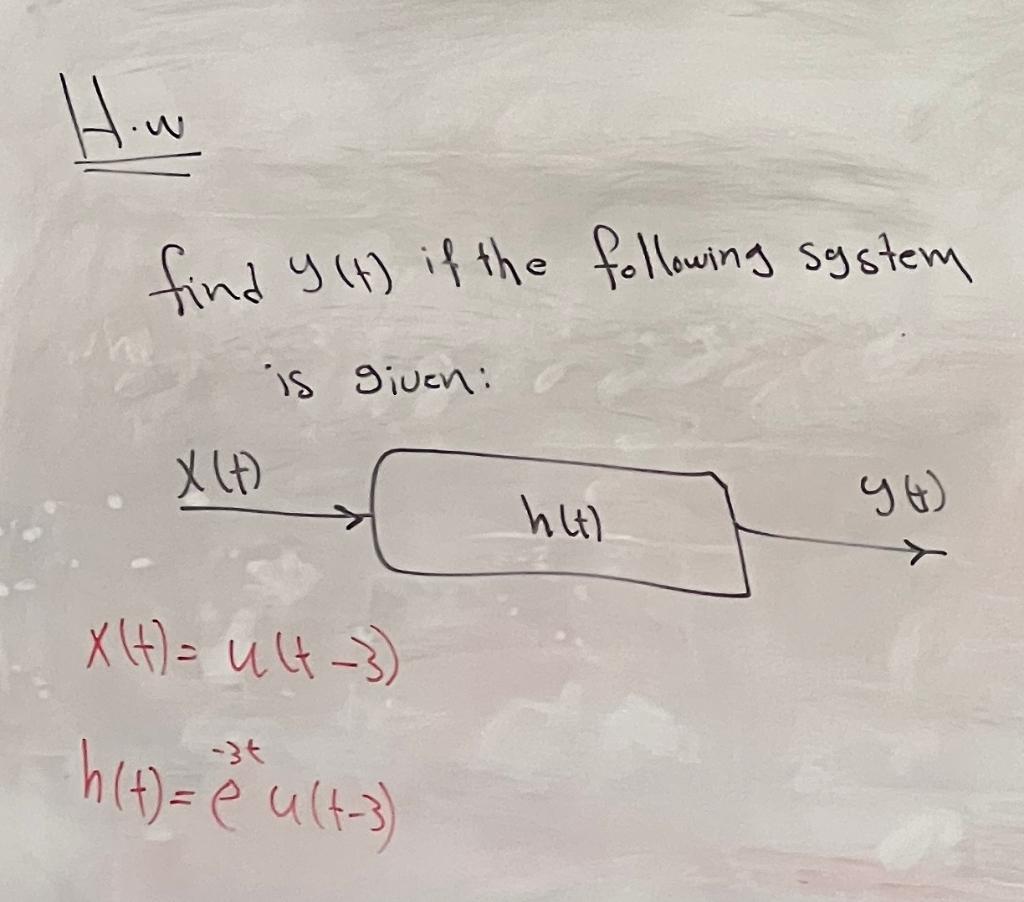 H.w
find y(t) if the following system
is given:
x(t)
h(t)
y(t)
x(t)= u(t-3)
h(t)= e^-3t u(t-3)